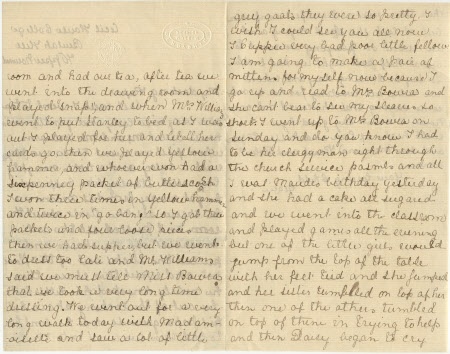 room and had our tea, after tea we
went into the drawing room and
played snap, and when Mrs Willis
went to put Stanley to bed as I was
out I played for her and
cards go then we played Yellow
and whoever won had a
sixpenny packet of Butter Scotch
I won three times in Yellow
and twice in "go bang" so I got three
packets and four loose pieces
then we had supper, but we went
to dress too late and Mr Williams
said we must tell Miss Bowra
that we took a very long time
dressing. We went out for a very
long walk today with Madam-
oiselle and saw a lot of little
grey goats they were so pretty. I
wish I could see you all now
I very bad poor little fellow
I am going to make a pair of
mittens for myself now because I
go up and read to Mrs Bowra and
she can't bear to see my sleeves so
short I went up to Mrs Bowra on
Sunday and do you know I had
to be her clergyman right through
the church service psalms and all
I was Maudes birthday yesterday
and she had a cake all sugared
and we went into the classroom
and played games all the evening
but one of the little girls would
jump from the top of the table
with her feet tied and she jumped
and her sister tumbled on top of her
then one of the others tumbled
on top of them in trying to help
and then Daisy began to cry